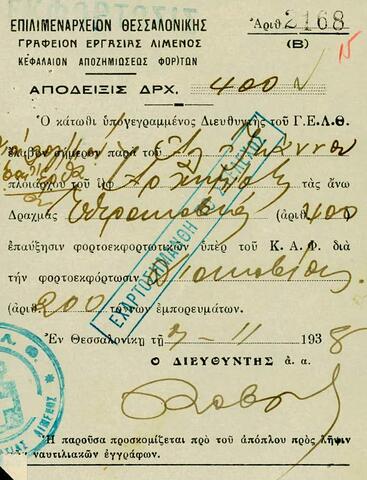 ΕΠΙΛΙΜΕΝΑΡΧΕΙΟΝ ΘΕΣΣΑΛΟΝΙΚΗΣ
Ἀριθ. 2168
ΓΡΑΦΕΙΟΝ ΕΡΓΑΣΙΑΣ ΛΙΜΕΝΟΣ
(Β)
15
ΚΕΦΑΛΑΙΟΝ ΑΠΟΖΗΜΙΩΣΕΩΣ ΦΟΡ)ΤΩΝ
ΑΠΟΔΕΙΞΙΣ ΔΡΧ. 400
Ὁ κάτωθι ὑπογεγραμμένος Διευθυντὴς τοῦ Γ.Ε.Λ.Θ.
ἔλαβον σήμερον παρὰ τοῦ
πλοιάρχου τοῦ τὰς ἄνω
Δραχμὰς Τετρακοσίας (ἀριθ. 400
ἐπαύξησιν φορτοεκφορτωτικῶν ὑπὲρ τοῦ Κ.Α.Φ. διὰ
τὴν φορτοεκφόρτωσιν Διακοσίας
(ἀριθ. 200 τόννων ἐμπορευμάτων.
Ἐν Θεσσαλονίκῃ τῇ 7-11 1938
Ὁ ΔΙΕΥΘΥΝΤΗΣ ἀ.α.
Ἡ παροῦσα προσκομίζεται πρὸ τοῦ ἀπόπλου πρὸς λῆψιν
τῶν ναυτιλιακῶν ἐγγράφων.
ΕΧΑΡΤΟΣΗΜΑΝΘΗ
ΛΙΜΕΝΟΣ